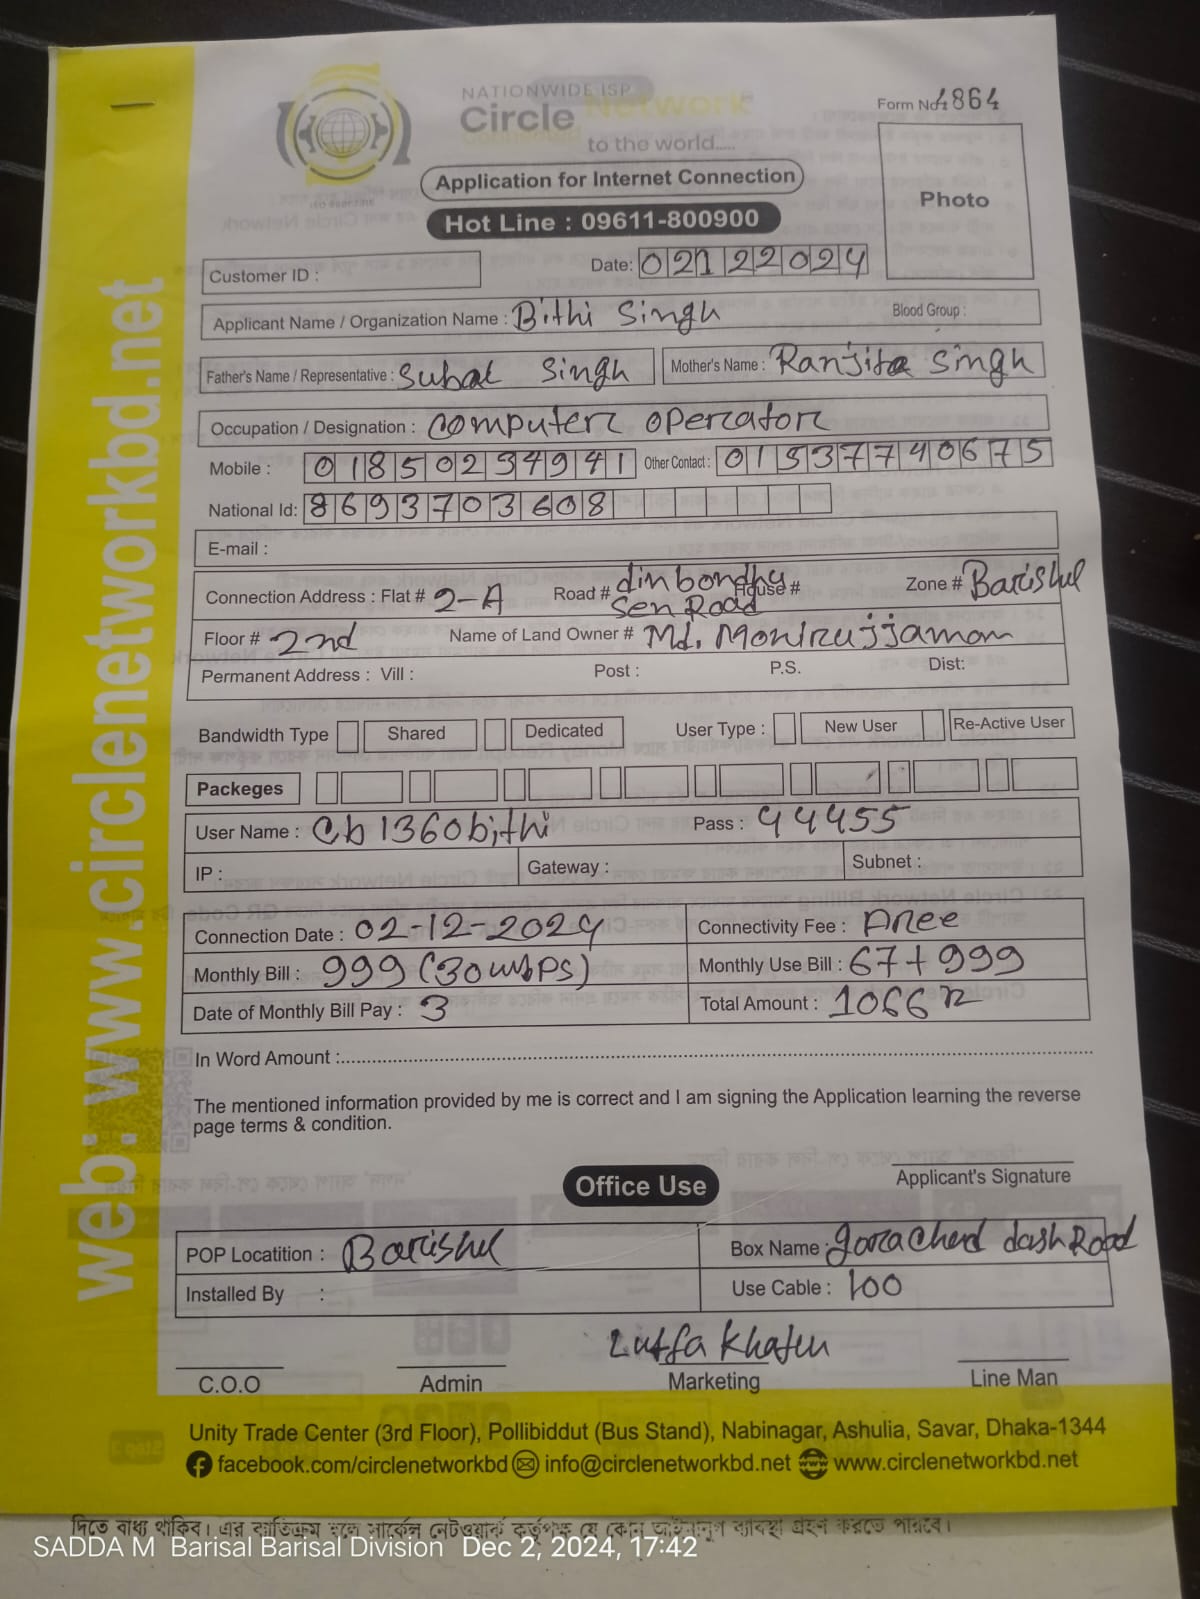 NATIONWIDE ISP
Circle Network
to the world.....
Form No: 4864
Photo
Application for Internet Connection
Hot Line : 09611-800900
Customer ID :
Date: 02122024
Applicant Name / Organization Name : Bithi Singh
Blood Group :
Father's Name / Representative : Subal Singh
Mother's Name : Ranjita Singh
Occupation / Designation : Computer Operator
Mobile : 01850234941 Other Contact : 01537740675
National Id: 8693703608
E-mail :
Connection Address : Flat # 2-A Road # dinbondhu Sen Road House # Zone # Barishal
Floor # 2nd Name of Land Owner # Md. Monirujjaman
Permanent Address : Vill : Post : P.S. Dist:
Bandwidth Type Shared Dedicated User Type : New User Re-Active User
Packeges
User Name : Cb1360bithi Pass : 44455
IP : Gateway : Subnet :
Connection Date : 02-12-2024 Connectivity Fee : Free
Monthly Bill : 999 (30mbps) Monthly Use Bill : 67+999
Date of Monthly Bill Pay : 3 Total Amount : 1066
In Word Amount :
The mentioned information provided by me is correct and I am signing the Application learning the reverse
page terms & condition.
Applicant's Signature
Office Use
POP Locatition : Barishal Box Name : gorachand dash Road
Installed By : Use Cable : 100
Lutfa Khatun
C.O.O Admin Marketing Line Man
Unity Trade Center (3rd Floor), Pollibiddut (Bus Stand), Nabinagar, Ashulia, Savar, Dhaka-1344
facebook.com/circlenetworkbd info@circlenetworkbd.net www.circlenetworkbd.net
web: www.circlenetworkbd.net
দিতে বাধ্য থাকিব। এর ব্যতিক্রম হলে সার্কেল নেটওয়ার্ক কর্তৃপক্ষ যে কোন আইনানুগ ব্যবস্থা গ্রহণ করতে পারবে।
SADDA M Barisal Barisal Division Dec 2, 2024, 17:42